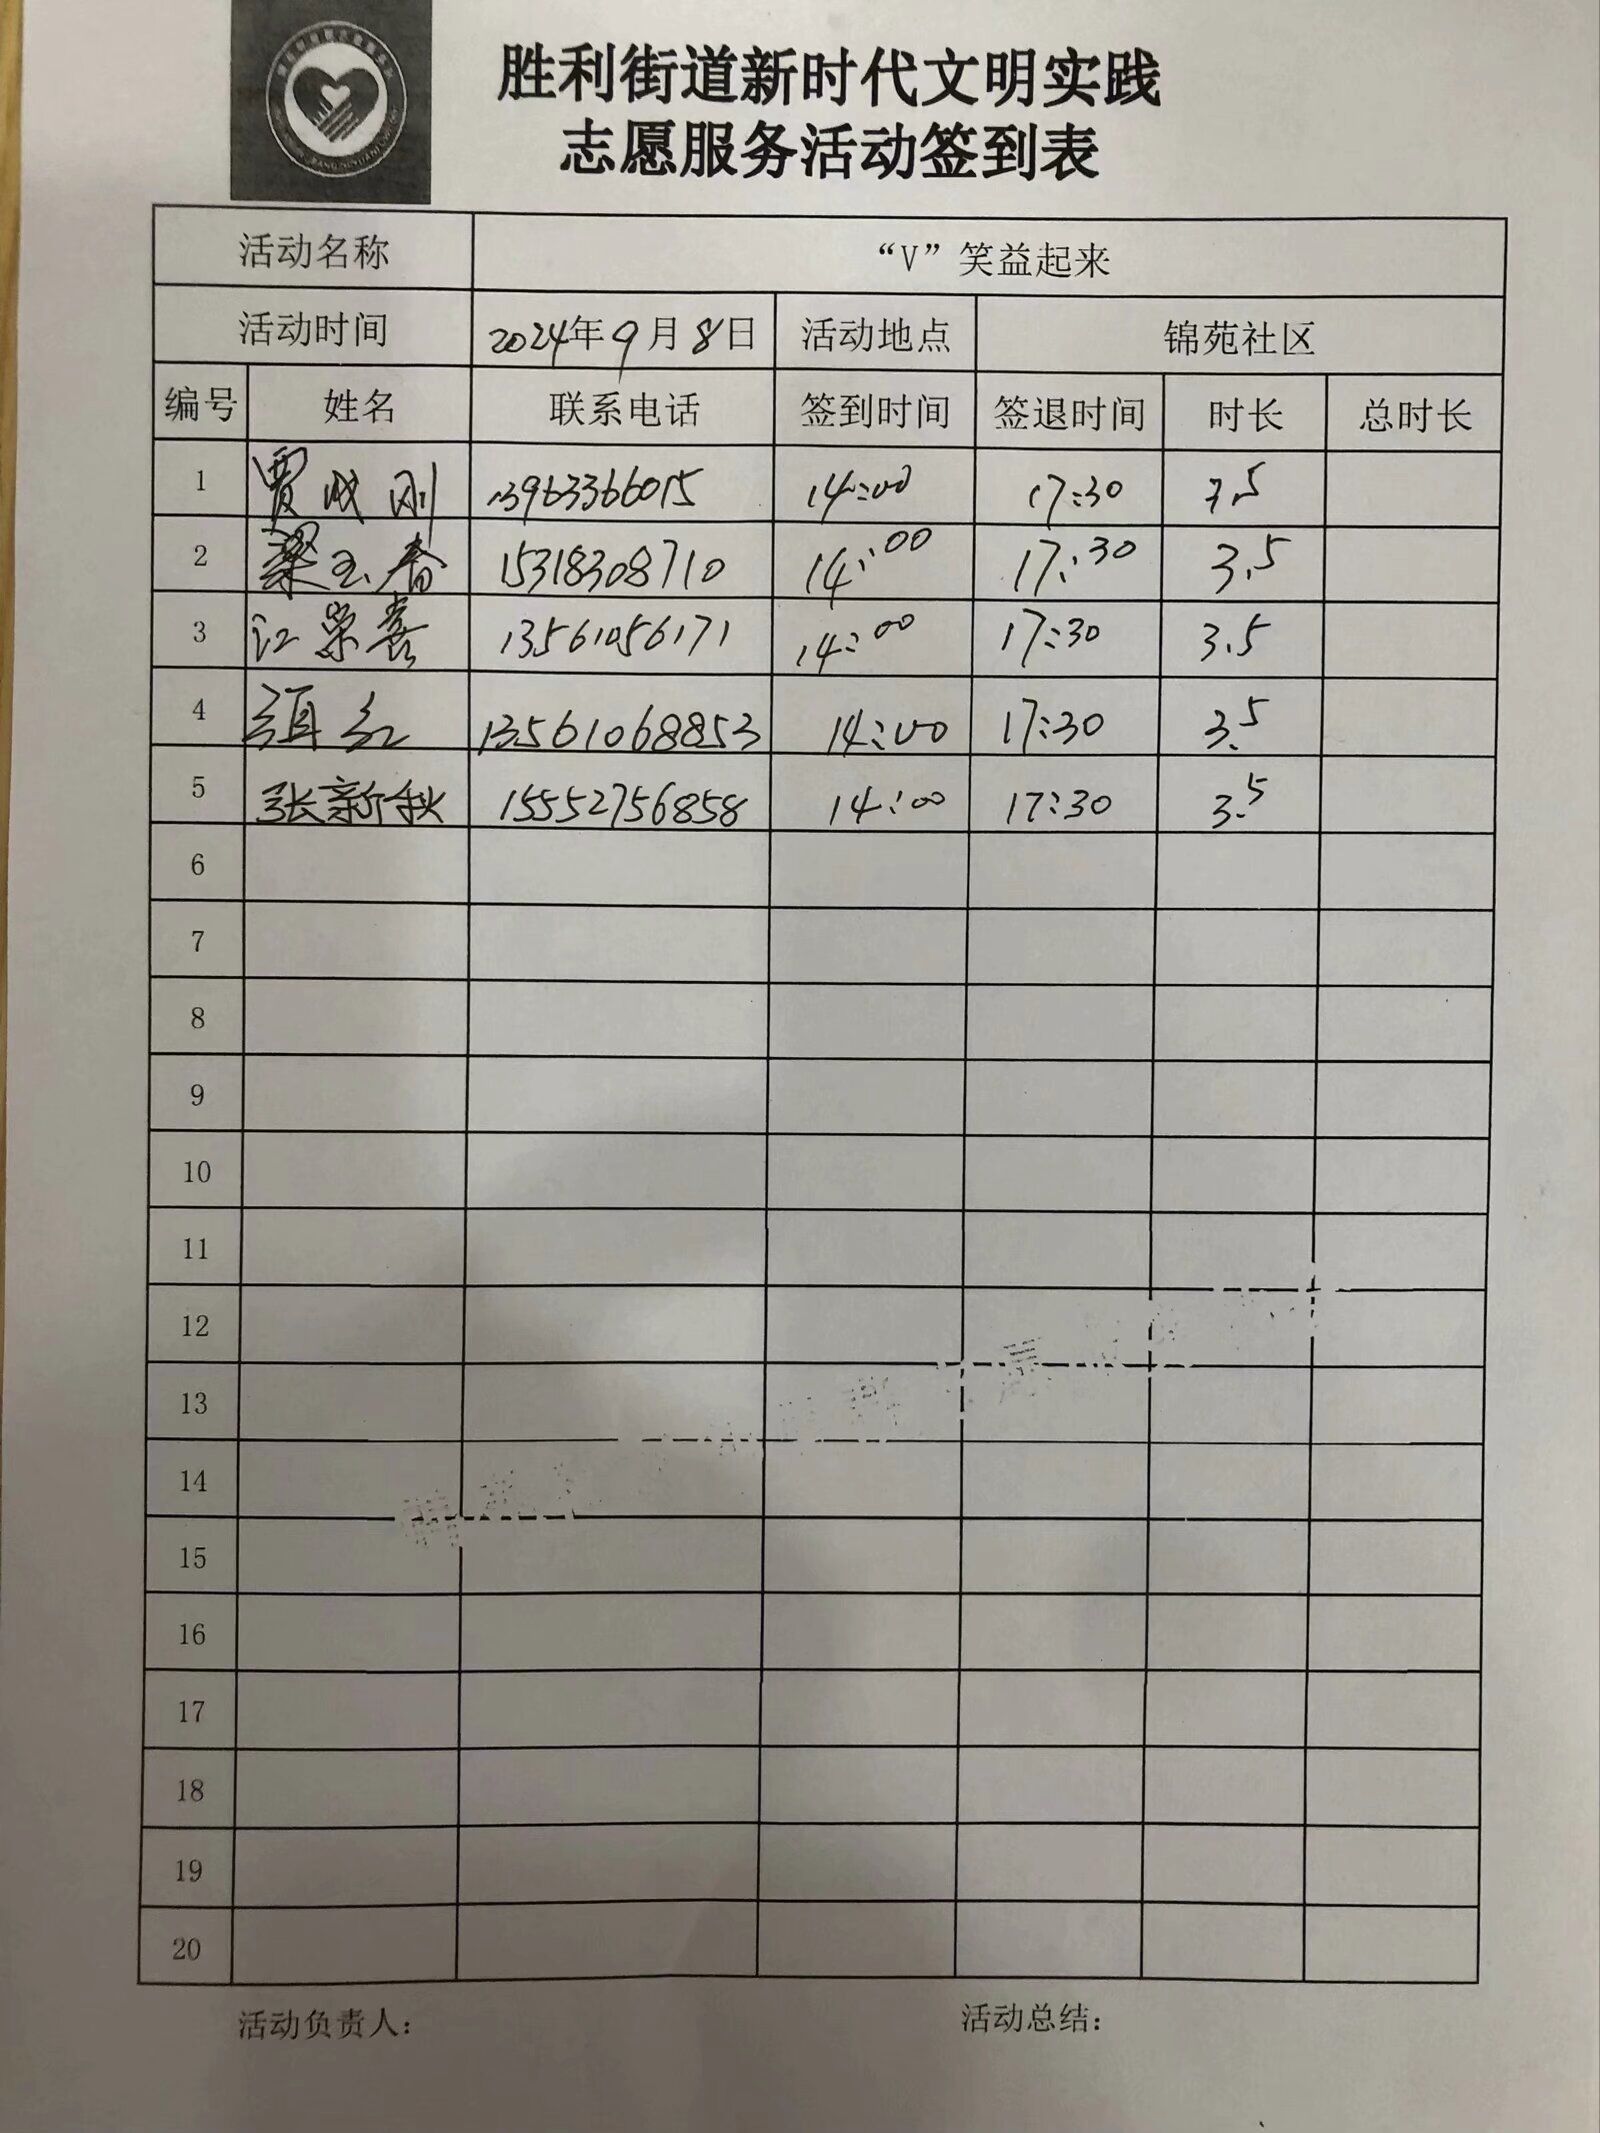 胜利街道新时代文明实践
志愿服务活动签到表
活动名称 “V”笑益起来
活动时间 2024年9月8日 活动地点 锦苑社区
编号 姓名 联系电话 签到时间 签退时间 时长 总时长
1 贾成刚 13963366015 14:00 17:30 3.5
2 梁玉春 15318308710 14:00 17:30 3.5
3 江荣喜 13561056171 14:00 17:30 3.5
4 红 13561068853 14:00 17:30 3.5
5 张新秋 15552756858 14:00 17:30 3.5
6
7
8
9
10
11
12
13
14
15
16
17
18
19
20
活动负责人: 活动总结: